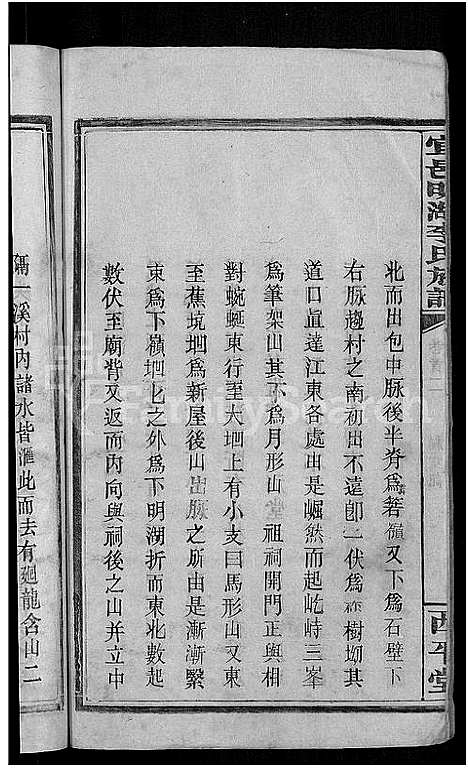 宜邑明湖李氏族譜
西平堂
北而出包中脉後半脊爲箬嶺又下爲石壁下
右脉趨村之南初出不遠卽一伏爲 樹坳其
道口眞達江東各處出是崛然而起屹峙三峯
爲筆架山其下爲月形山堂祖祠開門正與相
對蜿蜒東行至大垇上有小支曰馬形山又東
至蕉坑垇爲新屋後山出脉之所由是漸漸緊
束爲下嶺垇七之外爲下明湖折而東北數起
數伏至廟背又返而內向與祠後之山並立中
隔一溪村內諸水皆滙此而去有廻龍含山二
FamilySearch